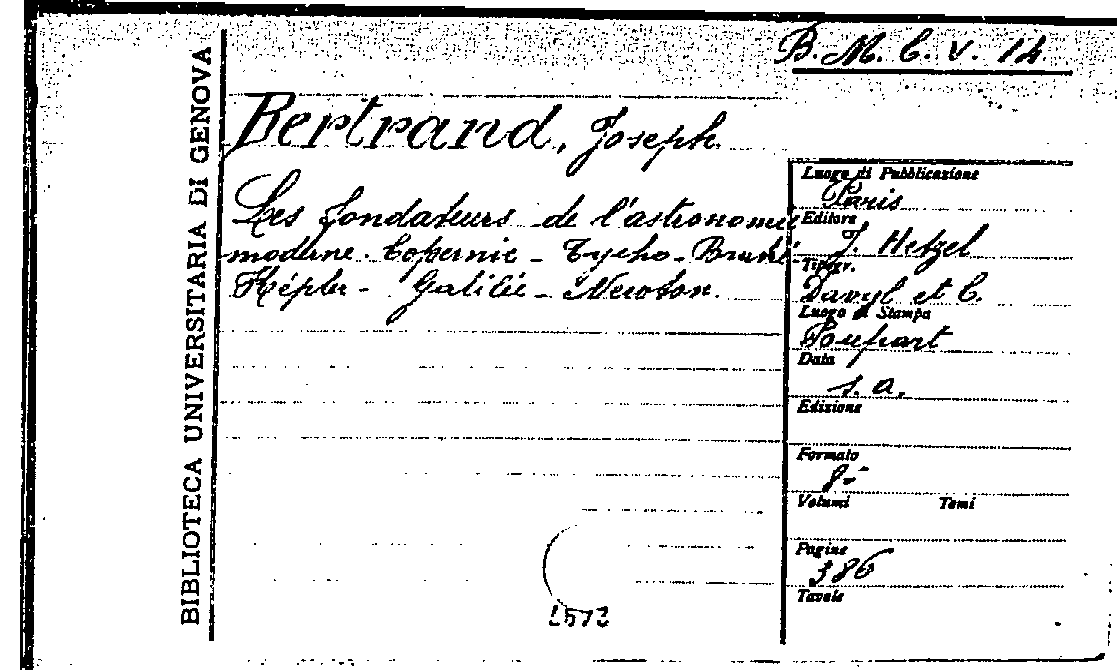 B. M. C. v. 14
BIBLIOTECA UNIVERSITARIA DI GENOVA
Bertrand, Joseph
Les fondateurs de l'astronomie
moderne. Copernic - Tycho-Brahé
Képler - Galilée - Newton.
Luogo di Pubblicazione
Paris
Editore
J. Hetzel
Tipogr.
Davyl et C.
Luogo di Stampa
Data
s. a.
Edizione
Formato
8°
Volumi Tomi
Pagine
386
Tavole